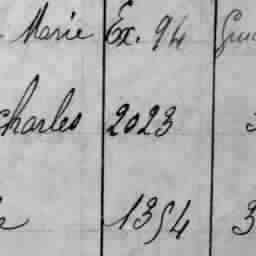 Marie Ex. 94
Charles 2023
1354 3